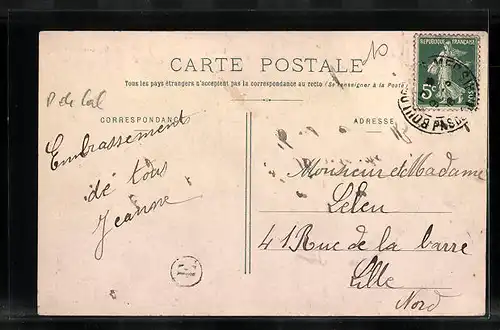 CARTE POSTALE
Tous les pays étrangers n'acceptent pas la correspondance au recto (Se renseigner à la Poste)
REPUBLIQUE FRANÇAISE
5c
P de Cal
CORRESPONDANCE
ADRESSE
Embrassements
de tous
Jeanne
E
Monsieur et Madame
Leleu
41 Rue de la barre
Lille
Nord